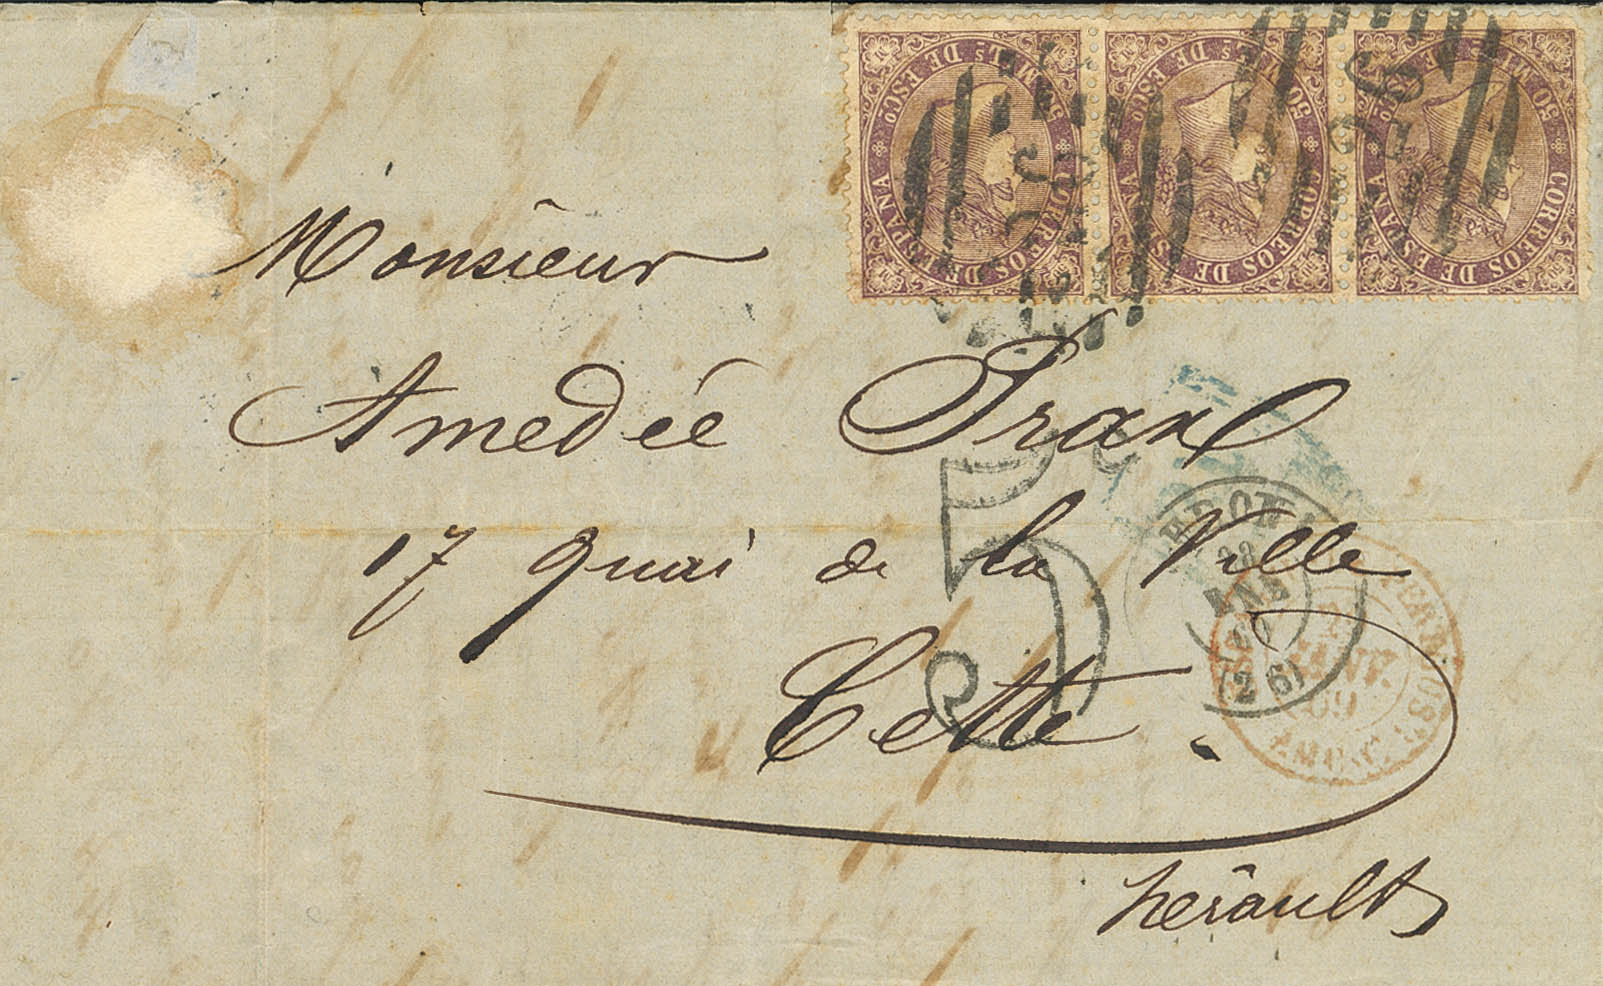 CORREOS DE ESPAÑA 50 MILs DE ESCo
CORREOS DE ESPAÑA 50 MILs DE ESCo
CORREOS DE ESPAÑA 50 MILs DE ESCo
Monsieur
Amedée Prax
17 Quai de la Ville
Cette.
hérault
5
GERONA
ENE
(26)
JANV.
69